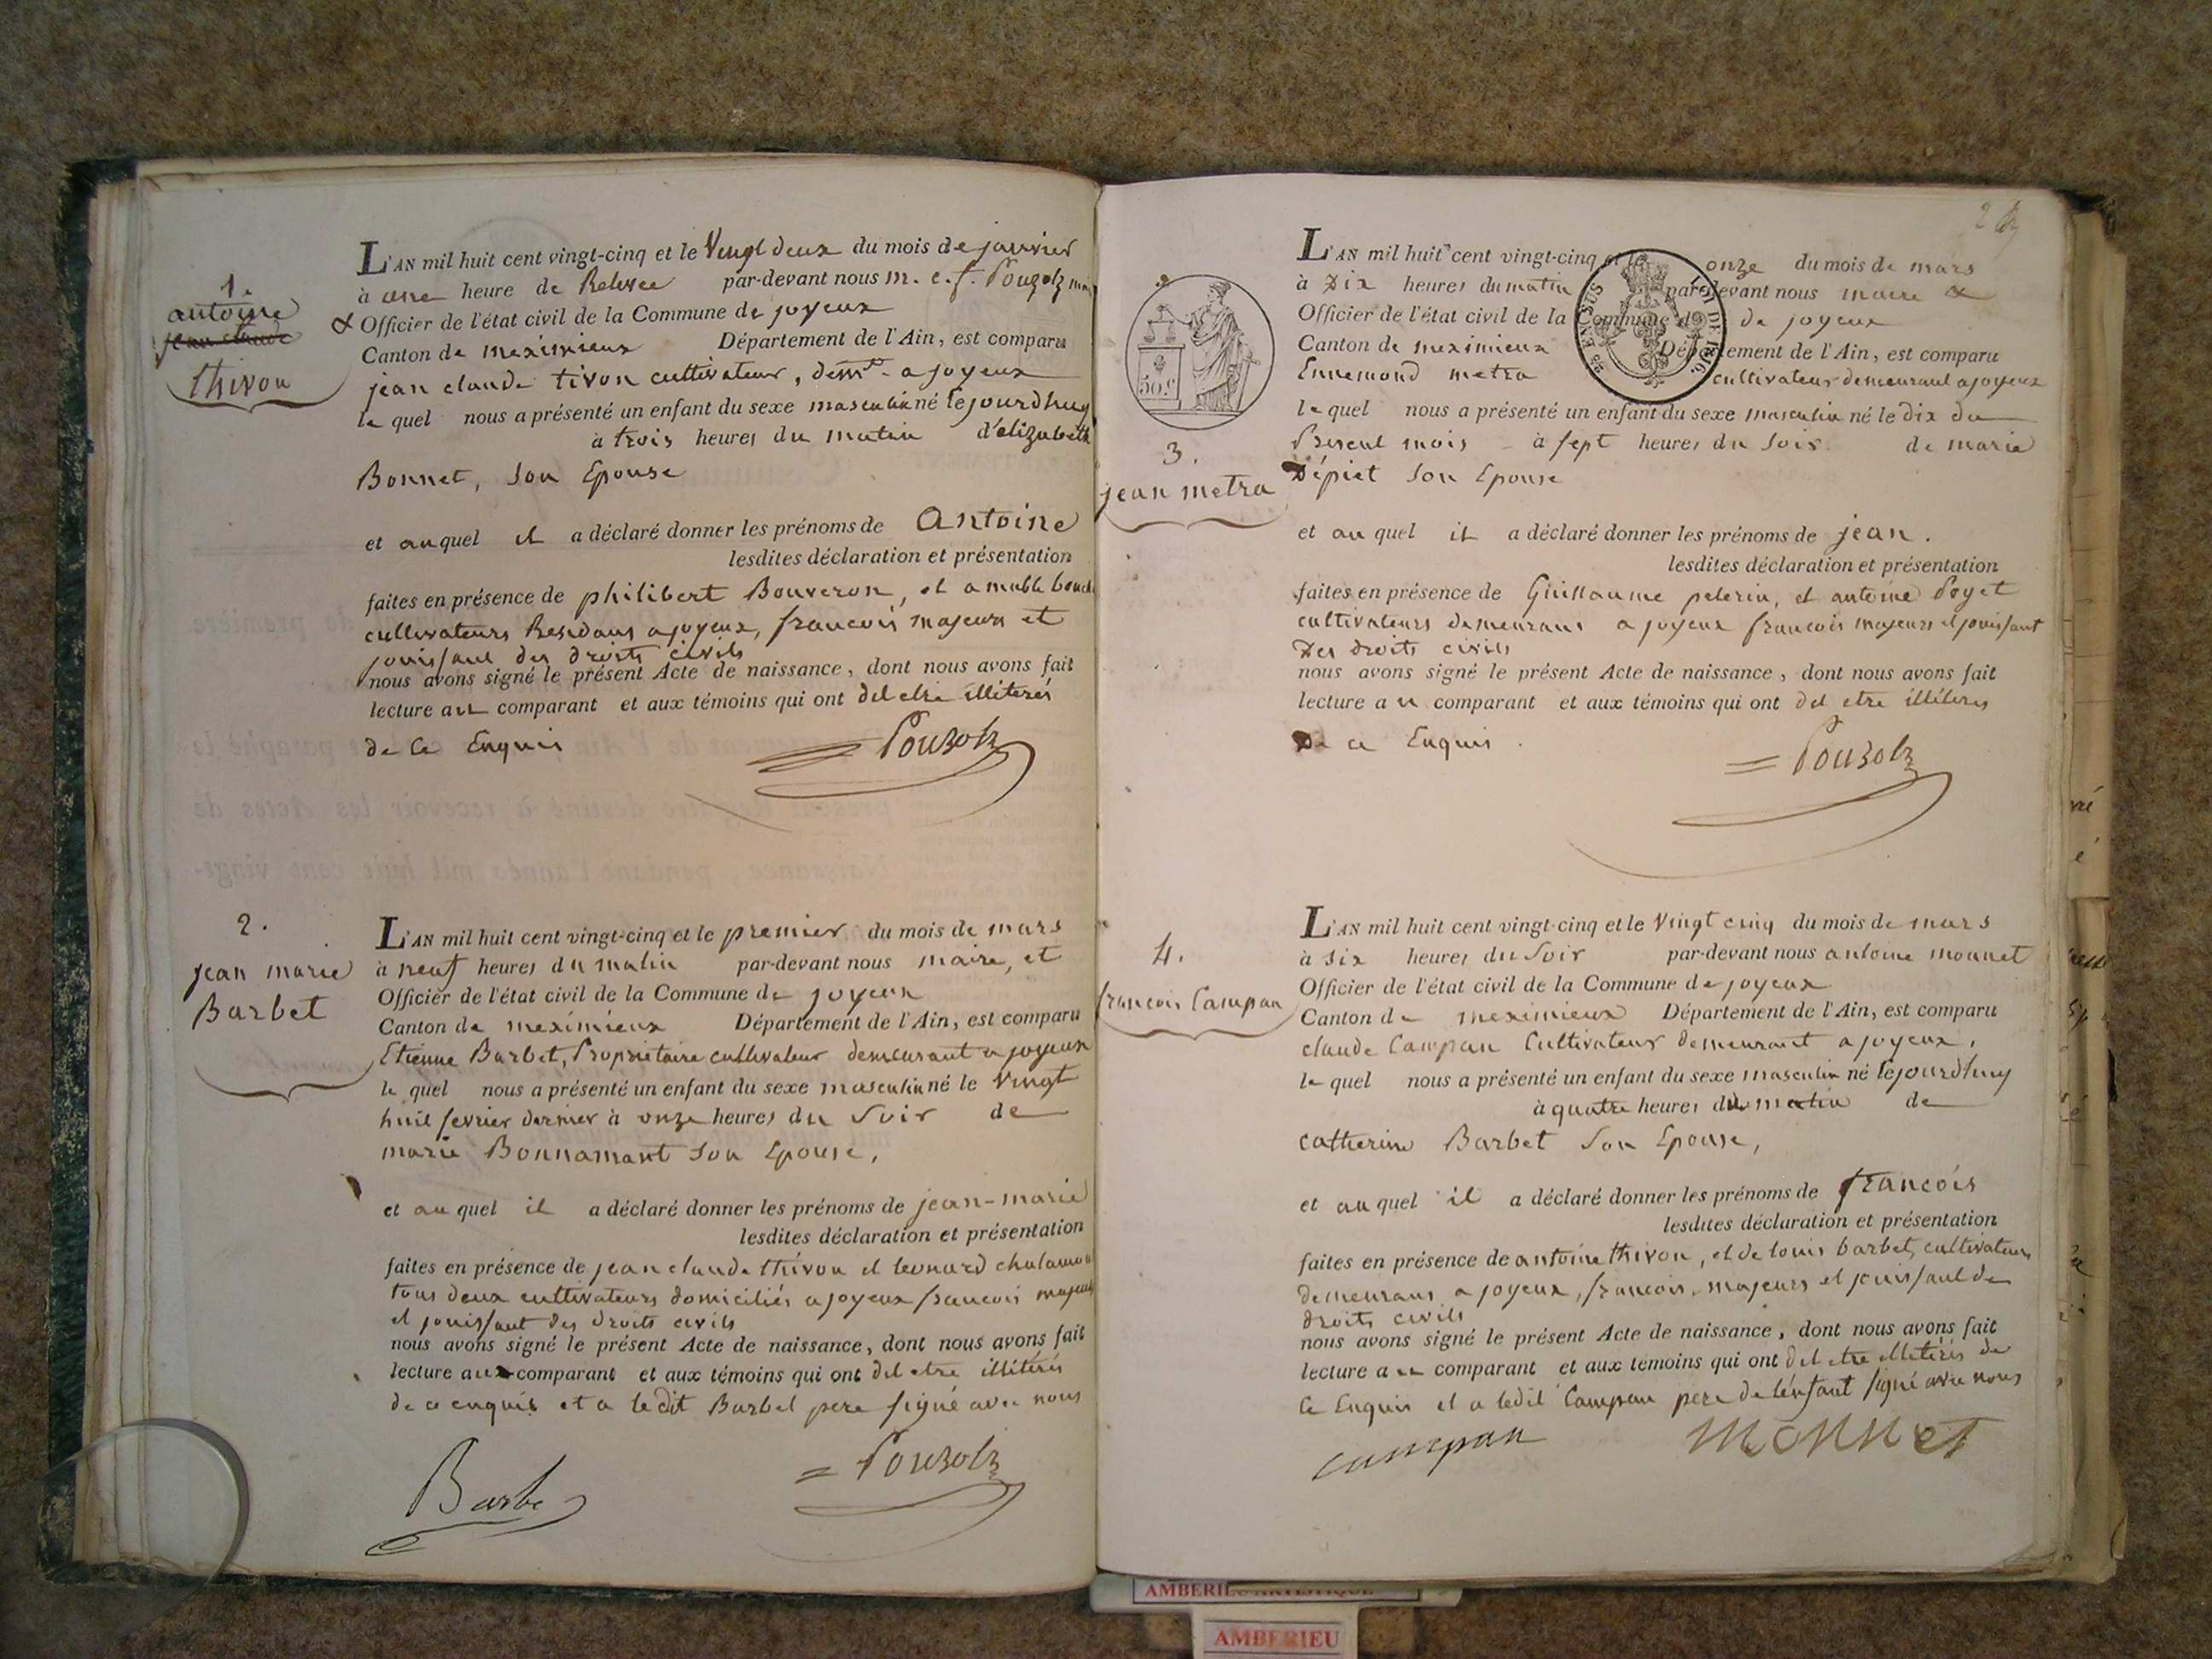 1.
antoine
jean claude
thivon
L'AN mil huit cent vingt-cinq et le Vingt deux du mois de janvier
à une heure de Relevee par-devant nous m. c. f. Pouzolz
& Officier de l'état civil de la Commune de joyeux
Canton de meximieux Département de l'Ain, est comparu
jean claude tivon cultivateur, demt. a joyeux
le quel nous a présenté un enfant du sexe masculin né cejourdhuy
à trois heures du matin d'elizabeth
Bonnet, son Epouse
et au quel il a déclaré donner les prénoms de Antoine
lesdites déclaration et présentation
faites en présence de philibert Bouveron, et
cultivateurs Residans a joyeux, francois majeurs et
jouissant des droits civils
nous avons signé le présent Acte de naissance, dont nous avons fait
lecture au comparant et aux témoins qui ont dit etre illiterés
de ce Enquis
Pouzolz
2.
jean marie
Barbet
L'AN mil huit cent vingt-cinq et le premier du mois de mars
à neuf heures du matin par-devant nous maire, et
Officier de l'état civil de la Commune de joyeux
Canton de meximieux Département de l'Ain, est comparu
Etienne Barbet, Proprietaire cultivateur demeurant a joyeux
le quel nous a présenté un enfant du sexe masculin né le vingt
huit fevrier dernier à onze heures du Soir de
marie Bonnamant son Epouse,
et au quel il a déclaré donner les prénoms de jean-marie
lesdites déclaration et présentation
faites en présence de jean claude thivon et leonard
tous deux cultivateurs domiciliés a joyeux francois majeurs
et jouissant des droits civils
nous avons signé le présent Acte de naissance, dont nous avons fait
lecture au comparant et aux témoins qui ont dit etre illitérés
de ce enquis et a le dit Barbet pere signé avec nous
Barbe
Pouzolz
2
EN SUS
LOI DE 1816.
50.c
3.
jean metra
L'AN mil huit cent vingt-cinq et le onze du mois de mars
à Dix heures du matin par-devant nous maire &
Officier de l'état civil de la Commune de de joyeux
Canton de meximieux Département de l'Ain, est comparu
Ennemond metra cultivateur demeurant a joyeux
le quel nous a présenté un enfant du sexe masculin né le dix du
Present mois à sept heures du soir de marie
Dépiet son Epouse
et au quel il a déclaré donner les prénoms de jean.
lesdites déclaration et présentation
faites en présence de Guillaume pelerin, et antoine Poyet
cultivateurs demeurans a joyeux francois majeurs et jouissant
Des droits civils
nous avons signé le présent Acte de naissance, dont nous avons fait
lecture au comparant et aux témoins qui ont dit etre illiteres
De ce Enquis.
Pouzolz
4.
francois Campan
L'AN mil huit cent vingt-cinq et le Vingt cinq du mois de mars
à six heures du Soir par-devant nous antoine monnet
Officier de l'état civil de la Commune de joyeux
Canton de meximieux Département de l'Ain, est comparu
claude Campan Cultivateur demeurant a joyeux,
le quel nous a présenté un enfant du sexe masculin né cejourdhuy
à quatre heures du matin de
catherine Barbet son Epouse,
et au quel il a déclaré donner les prénoms de francois
lesdites déclaration et présentation
faites en présence de antoine thivon, et de louis barbet, cultivateurs
demeurans a joyeux, francois, majeurs et jouissant de
droits civils
nous avons signé le présent Acte de naissance, dont nous avons fait
lecture au comparant et aux témoins qui ont dit etre illetirés de
ce Enquis et a ledit Campan pere de l'enfant signé avec nous
campan
monnet
AMBERIEU